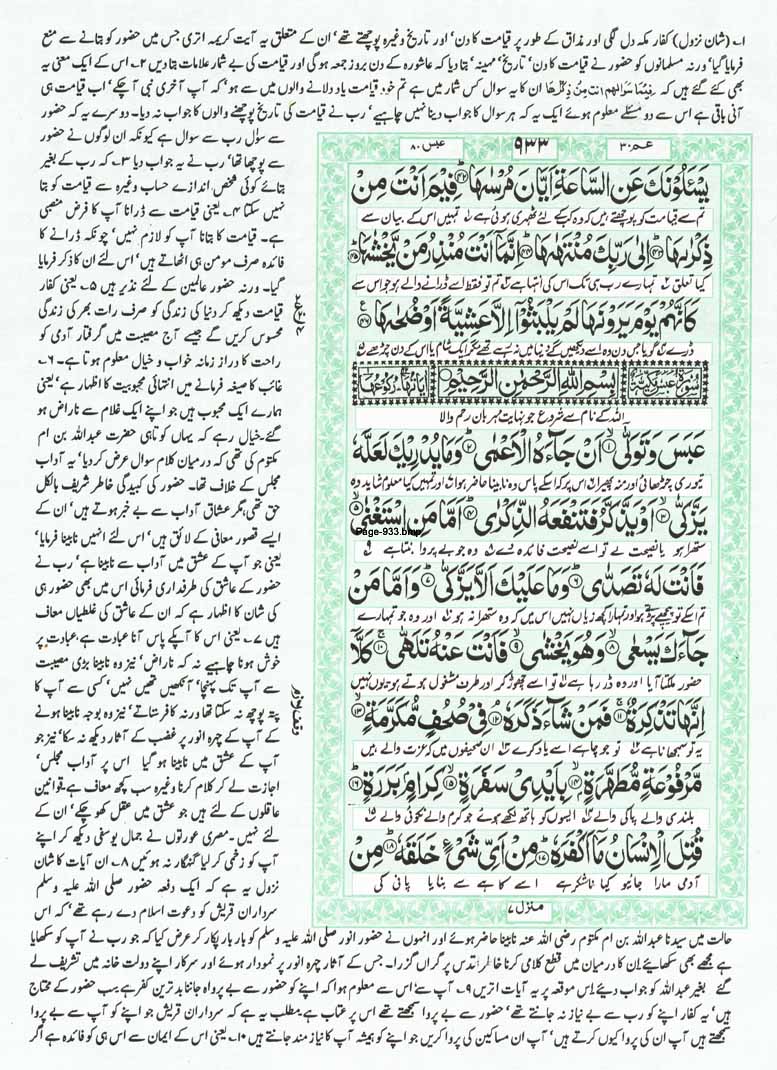 ۱۔ (شان نزول) کفار مکہ دل لگی اور مذاق کے طور پر قیامت کا دن' اور تاریخ وغیرہ پوچھتے تھے' ان کے متعلق یہ آیت کریمہ اتری جس میں حضور کو بتانے سے منع
فرمایا گیا' ورنہ مسلمانوں کو حضور نے قیامت کا دن' تاریخ' مہینہ' بتا دیا کہ عاشورہ کے دن بروز جمعہ ہو گی اور قیامت کی بے شمار علامات بتا دیں ۲۔ اس کے ایک معنی یہ
بھی کئے گئے ہیں کہ فِيْمَا سَوَالِهِمْ اَنْتَ مِنْ ذِكْرٰىهَا ان کا یہ سوال کس شمار میں ہے تم خود قیامت یاد دلانے والوں میں سے ہو' کہ آپ آخری نبی آ چکے' اب قیامت ہی
آنی باقی ہے اس سے دو مسئلے معلوم ہوئے ایک یہ کہ ہر سوال کا جواب دینا نہیں چاہیے' رب نے قیامت کی تاریخ پوچھنے والوں کا جواب نہ دیا۔ دوسرے یہ کہ حضور
سے سوال رب سے سوال ہے کیونکہ ان لوگوں نے حضور
سے پوچھا تھا' رب نے یہ جواب دیا ۳۔ کہ رب کے بغیر
بتائے کوئی شخص اندازے حساب وغیرہ سے قیامت کو بتا
نہیں سکتا ۴۔ یعنی قیامت سے ڈرانا آپ کا فرض منصبی
ہے۔ قیامت کا بتانا آپ کو لازم نہیں' چونکہ ڈرانے کا
فائدہ صرف مومن ہی اٹھاتے ہیں' اس لئے ان کا ذکر فرمایا
گیا۔ ورنہ حضور عالمین کے لئے نذیر ہیں ۵۔ یعنی کفار
قیامت دیکھ کر دنیا کی زندگی کو صرف رات بھر کی زندگی
محسوس کریں گے جیسے آج مصیبت میں گرفتار آدمی کو
راحت کا دراز زمانہ خواب و خیال معلوم ہوتا ہے۔ ۶۔
غائب کا صیغہ فرمانے میں انتہائی محبوبیت کا اظہار ہے' یعنی
ہمارے ایک محبوب ہیں جو اپنے ایک غلام سے ناراض ہو
گئے۔ خیال رہے کہ یہاں کوتاہی حضرت عبداللہ بن ام
مکتوم کی تھی کہ درمیان کلام سوال عرض کر دیا' یہ آداب
مجلس کے خلاف تھا۔ حضور کی کبیدگی خاطر شریف بالکل
حق تھی' مگر عشاق آداب سے بے خبر ہوتے ہیں' ان کے
ایسے قصور معافی کے لائق ہیں' اس لئے انہیں نابینا فرمایا'
یعنی جو آپ کے عشق میں آداب سے نابینا ہے' رب نے
حضور کے عاشق کی طرفداری فرمائی اس میں بھی حضور ہی
کی شان کا اظہار ہے کہ ان کے عاشق کی غلطیاں معاف
ہیں ۷۔ یعنی اس کا آپ کے پاس آنا عبادت ہے' عبادت پر
خوش ہونا چاہیے نہ کہ ناراض' نیز وہ نابینا بڑی مصیبت
سے آپ تک پہنچا' آنکھیں تھیں نہیں' کسی سے آپ کا
پتہ پوچھ نہ سکتا تھا ورنہ کافر ستاتے' نیز وہ بوجہ نابینا ہونے
کے آپ کے چہرہ انور پر غضب کے آثار دیکھ نہ سکا' نیز جو
آپ کے عشق میں نابینا ہو گیا اس پر آداب مجلس'
اجازت لے کر کلام کرنا وغیرہ سب کچھ معاف ہے' قوانین
عاقلوں کے لئے ہیں جو عشق میں عقل کھو چکے' ان کے
لئے نہیں۔ مصری عورتوں نے جمال یوسفی دیکھ کر اپنے
آپ کو زخمی کر لیا گنہگار نہ ہوئیں ۸۔ ان آیات کا شان
نزول یہ ہے کہ ایک دفعہ حضور صلی اللہ علیہ وسلم
سرداران قریش کو دعوت اسلام دے رہے تھے' کہ اس
عبس ۸۰
۹۳۳
عم ۳۰
يَسْـَٔلُوْنَكَ عَنِ السَّاعَةِ اَيَّانَ مُرْسٰىهَا ﴿۴۲﴾ فِيْمَ اَنْتَ مِنْ
تم سے قیامت کو پوچھتے ہیں کہ وہ کب کے لئے ٹھہری ہوئی ہے تمہیں اس کے بیان سے
ذِكْرٰىهَا ﴿۴۳﴾ اِلٰى رَبِّكَ مُنْتَهٰىهَا ﴿۴۴﴾ اِنَّمَاۤ اَنْتَ مُنْذِرُ مَنْ يَّخْشٰىهَا ﴿۴۵﴾
کیا تعلق تمہارے رب ہی تک اس کی انتہا ہے تم تو فقط اسے ڈرانے والے ہو جو اس سے
كَاَنَّهُمْ يَوْمَ يَرَوْنَهَا لَمْ يَلْبَثُوْۤا اِلَّا عَشِيَّةً اَوْ ضُحٰىهَا ﴿۴۶﴾
ڈرے گویا جس دن وہ اسے دیکھیں گے دنیا میں نہ رہے تھے مگر ایک شام یا اس کے دن چڑھے
سُوْرَةُ عَبَسَ مَكِّيَّةٌ بِسْمِ اللّٰهِ الرَّحْمٰنِ الرَّحِيْمِ اٰيَاتُهَا ۴۲ رُكُوْعُهَا ۱
اللہ کے نام سے شروع جو نہایت مہربان رحم والا
عَبَسَ وَتَوَلّٰىۤ ﴿۱﴾ اَنْ جَآءَهُ الْاَعْمٰى ﴿۲﴾ وَمَا يُدْرِيْكَ لَعَلَّهٗ
تیوری چڑھائی اور منہ پھیرا اس پر کہ اسکے پاس وہ نابینا حاضر ہوا اور تمہیں کیا معلوم شاید وہ
يَزَّكّٰىۤ ﴿۳﴾ اَوْ يَذَّكَّرُ فَتَنْفَعَهُ الذِّكْرٰى ﴿۴﴾ اَمَّا مَنِ اسْتَغْنٰى ﴿۵﴾
Page-933.bmp
ستھرا ہو یا نصیحت لے تو اسے نصیحت فائدہ دے وہ جو بے پروا بنتا ہے
فَاَنْتَ لَهٗ تَصَدّٰى ﴿۶﴾ وَمَا عَلَيْكَ اَلَّا يَزَّكّٰى ﴿۷﴾ وَاَمَّا مَنْ
تم اسکے تو پیچھے پڑتے ہو اور تمہارا کچھ زیاں نہیں اس میں کہ وہ ستھرا نہ ہو اور وہ جو تمہارے
جَآءَكَ يَسْعٰى ﴿۸﴾ وَهُوَ يَخْشٰى ﴿۹﴾ فَاَنْتَ عَنْهُ تَلَهّٰى ﴿۱۰﴾ كَلَّاۤ
حضور ملکتا آیا اور وہ ڈر رہا ہے تو اسے چھوڑ کر اور طرف مشغول ہوتے ہو یوں نہیں
اِنَّهَا تَذْكِرَةٌ ﴿۱۱﴾ فَمَنْ شَآءَ ذَكَرَهٗ ﴿۱۲﴾ فِيْ صُحُفٍ مُّكَرَّمَةٍ ﴿۱۳﴾
یہ تو سمجھانا ہے تو جو چاہے اسے یاد کرے ان صحیفوں میں کہ عزت والے ہیں
مَّرْفُوْعَةٍ مُّطَهَّرَةٍۭ ﴿۱۴﴾ بِاَيْدِيْ سَفَرَةٍ ﴿۱۵﴾ كِرَامٍۭ بَرَرَةٍ ﴿۱۶﴾
بلندی والے پاکی والے ایسوں کو ہاتھ لکھے ہوئے جو کرم والے نکوئی والے
قُتِلَ الْاِنْسَانُ مَاۤ اَكْفَرَهٗ ﴿۱۷﴾ مِنْ اَيِّ شَيْءٍ خَلَقَهٗ ﴿۱۸﴾ مِنْ
آدمی مارا جائیو کیا ناشکر ہے اسے کاہے سے بنایا پانی کی
منزل ۷
حالت میں سیدنا عبداللہ بن ام مکتوم رضی اللہ عنہ نابینا حاضر ہوئے اور انہوں نے حضور انور صلی اللہ علیہ وسلم کو بار بار پکار کر عرض کیا کہ جو رب نے آپ کو سکھایا
ہے مجھے بھی سکھایئے' ان کا درمیان میں قطع کلامی کرنا خاطر اقدس پر گراں گزرا۔ جس کے آثار چہرہ انور پر نمودار ہوئے اور سرکار اپنے دولت خانہ میں تشریف لے
گئے بغیر عبداللہ کو جواب دیئے' اس موقعہ پر یہ آیات اتریں ۹۔ آپ سے' اس سے معلوم ہوا کہ اپنے کو حضور سے بے پرواہ جاننا بدترین کفر ہے' سب حضور کے محتاج
ہیں' یہ کفار اپنے کو رب سے بے نیاز نہ جانتے تھے' حضور سے بے پروا سمجھتے تھے اس پر عتاب ہے' مطلب یہ ہے کہ سرداران قریش جو اپنے کو آپ سے بے پروا
سمجھتے ہیں آپ ان کی پروا کیوں کرتے ہیں' آپ ان مساکین کی پروا کریں جو اپنے کو ہمیشہ آپ کا نیاز مند جانتے ہیں ۱۰۔ یعنی اس کے ایمان سے اس ہی کو فائدہ ہے اگر